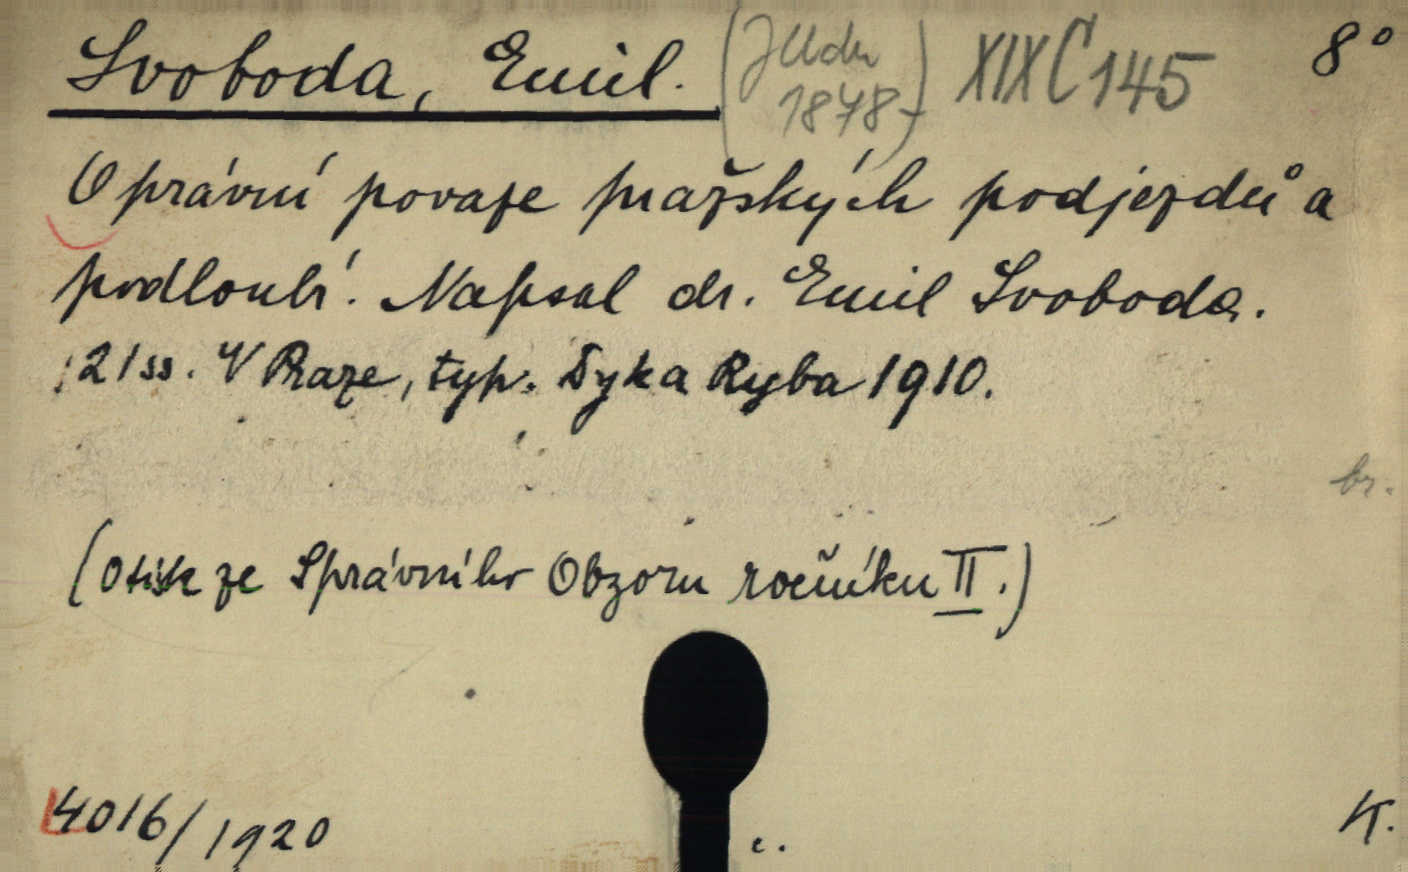 Svoboda, Emil. (JUDr XIX C 145 8°
1878-)
O právní povaze pražských podjezdů a
podloubí. Napsal dr. Emil Svoboda.
21 ss. V Praze, typ. Dyk a Ryba 1910.
br.
(Otisk ze Správního Obzoru ročníku II.)
4016/1920 c. K.